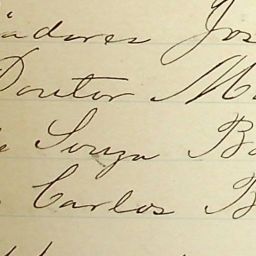 adores Jos
Doutor M
e Souza Ba
Carlos B